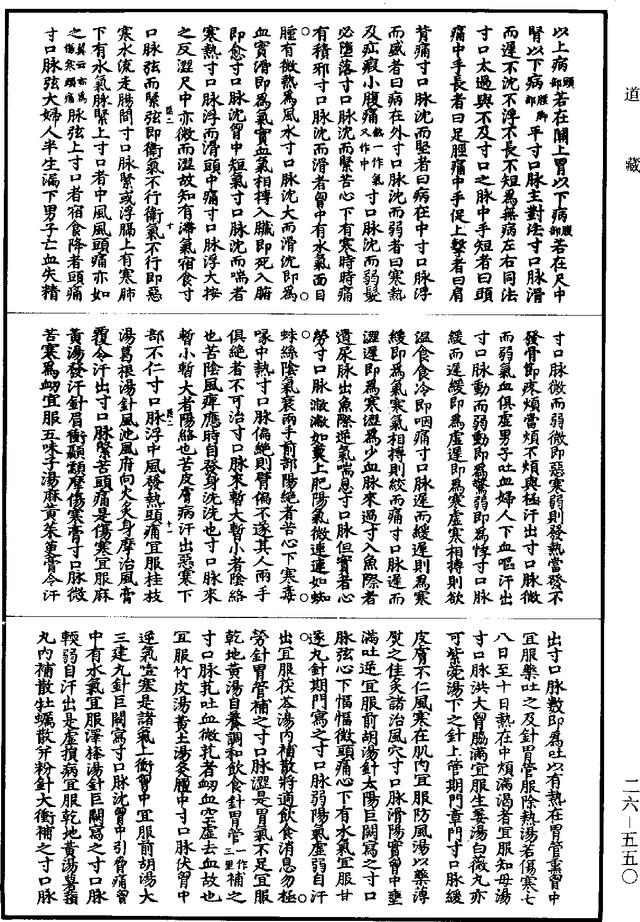 道藏
以上病頭部若在關上胃以下病腹部若在尺中
腎以下病腰脚部平寸口脉主對法寸口脉滑
而遲不沈不浮不長不短爲無病左右同法
寸口太過與不及寸口之脉中手短者曰頭
痛中手長者曰足脛痛中手促上擊者曰肩
背痛寸口脉沈而堅者曰病在中寸口脉浮
而盛者曰病在外寸口脉沈而弱者曰寒熱
及疝瘕小腹痛熱一作氣又作中寸口脉沈而弱髮
必墮落寸口脉沈而緊苦心下有寒時時痛
有積邪寸口脉沈而滑者胷中有水氣面目
腫有微熱爲風水寸口脉沈大而滑沈即爲
血實滑即爲氣實血氣相搏入臟即死入腑
即愈寸口脉沈胷中短氣寸口脉沈而喘者
寒熱寸口脉浮而滑頭中痛寸口脉浮大按
之反澀尺中亦微而澀故知有滯氣宿食寸
口脉弦而緊弦即衛氣不行衛氣不行即惡
寒水流走腸間寸口脉緊或浮膈上有寒肺
下有水氣脉緊上寸口者中風風頭痛亦如
之脉弦上寸口者宿食降者頭痛
寸口脉弦大婦人半生漏下男子亡血失精
寸口脉微而弱微即惡寒弱則發熱當發不
發骨即疼煩當煩不煩與極汗出寸口脉微
而弱氣血俱虛男子吐血婦人下血嘔汗出
寸口脉動而弱動即爲驚弱即爲悸寸口脉
緩而遲緩即爲虛遲即爲寒虛寒相搏則欲
溫食食冷即咽痛寸口脉遲而緩遲則爲寒
緩即爲氣寒氣相搏則絞而痛寸口脉遲而
澀遲即爲寒澀爲少血脉來過寸入魚際者
遺尿脉出魚際逆氣喘息寸口脉但實者心
勞寸口脉潎潎如羹上肥陽氣微連連如蜘
蛛絲陰氣衰兩手前部陽絕者苦心下寒毒
喙中熱寸口脉偏絕則臂偏不遂其人兩手
俱絕者不可治寸口脉來暫大暫小者陰絡
也苦陰風痺應時自發身洗洗也寸口脉來
暫小暫大者陽絡也苦皮膚病汗出惡寒下
部不仁寸口脉浮中風發熱頭痛宜服桂枝
湯葛根湯針風池風府向火炙身摩治風膏
覆令汗出寸口脉緊苦頭痛是傷寒宜服麻
黃湯發汗針眉衝顳顬摩傷寒膏寸口脉微
苦寒爲衂宜服五味子湯麻黃茱萸膏令汗
出寸口脉數即爲吐以有熱在胃管熏胷中
宜服藥吐之及針胃管服除熱湯若傷寒七
八日至十日熱在中煩滿渴者宜服知母湯
寸口脉洪大胷脇滿宜服生薑湯白薇丸亦
可紫菀湯下之針上管期門章門寸口脉緩
皮膚不仁風寒在肌肉宜服防風湯以藥薄
熨之佳灸諸治風穴寸口脉滑陽實胷中壅
滿吐逆宜服前胡湯針太陽巨闕寫之寸口
脉弦心下愊愊微頭痛心下有水氣宜服甘
遂丸針期門寫之寸口脉弱陽氣虛弱自汗
出宜服茯苓湯內補散將適飲食消息勿極
勞針胃管補之寸口脉澀是胃氣不足宜服
乾地黃湯自養調和飲食針胃管一作三里補之
寸口脉芤吐血微芤者衂血空虛去血故也
宜服竹皮湯黃土湯灸膻中寸口脉伏胷中
逆氣噎塞是諸氣上衝胷中宜服前胡湯大
三建丸針巨闕寫寸口脉沈胷中引脅痛胷
中有水氣宜服澤漆湯針巨闕寫之寸口脉
輭弱自汗出是虛損病宜服乾地黃湯薯蕷
丸內補散牡蠣散并粉針太衝補之寸口脉
二六–五五〇